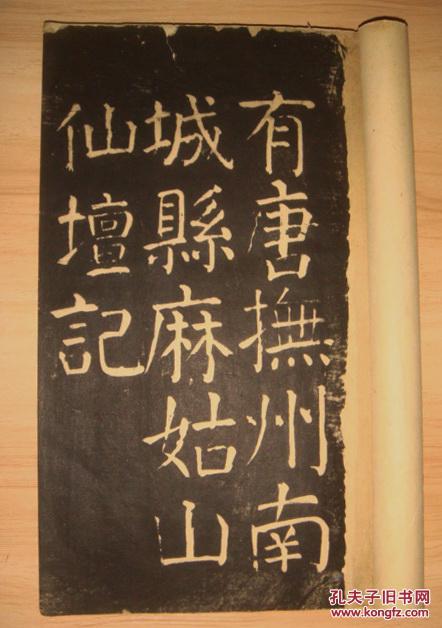 有唐撫州南
城縣麻姑山
仙壇記
孔夫子旧书网
www.kongfz.com